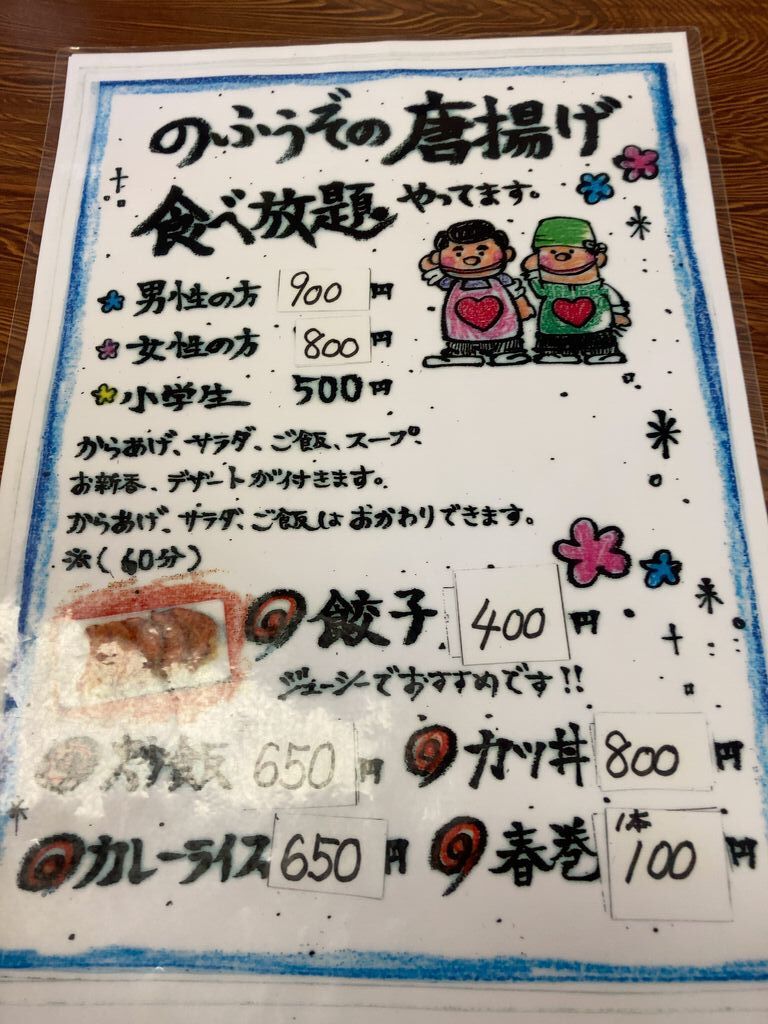 のふうぞの唐揚げ
食べ放題 やってます。
男性の方 900円
女性の方 800円
小学生 500円
からあげ、サラダ、ご飯、スープ、
お新香、デザートが付きます。
からあげ、サラダ、ご飯はおかわりできます。
※(60分)
餃子 400円
ジューシーでおすすめです!!
炒飯 650円 カツ丼 800円
カレーライス 650円 春巻 1本 100円